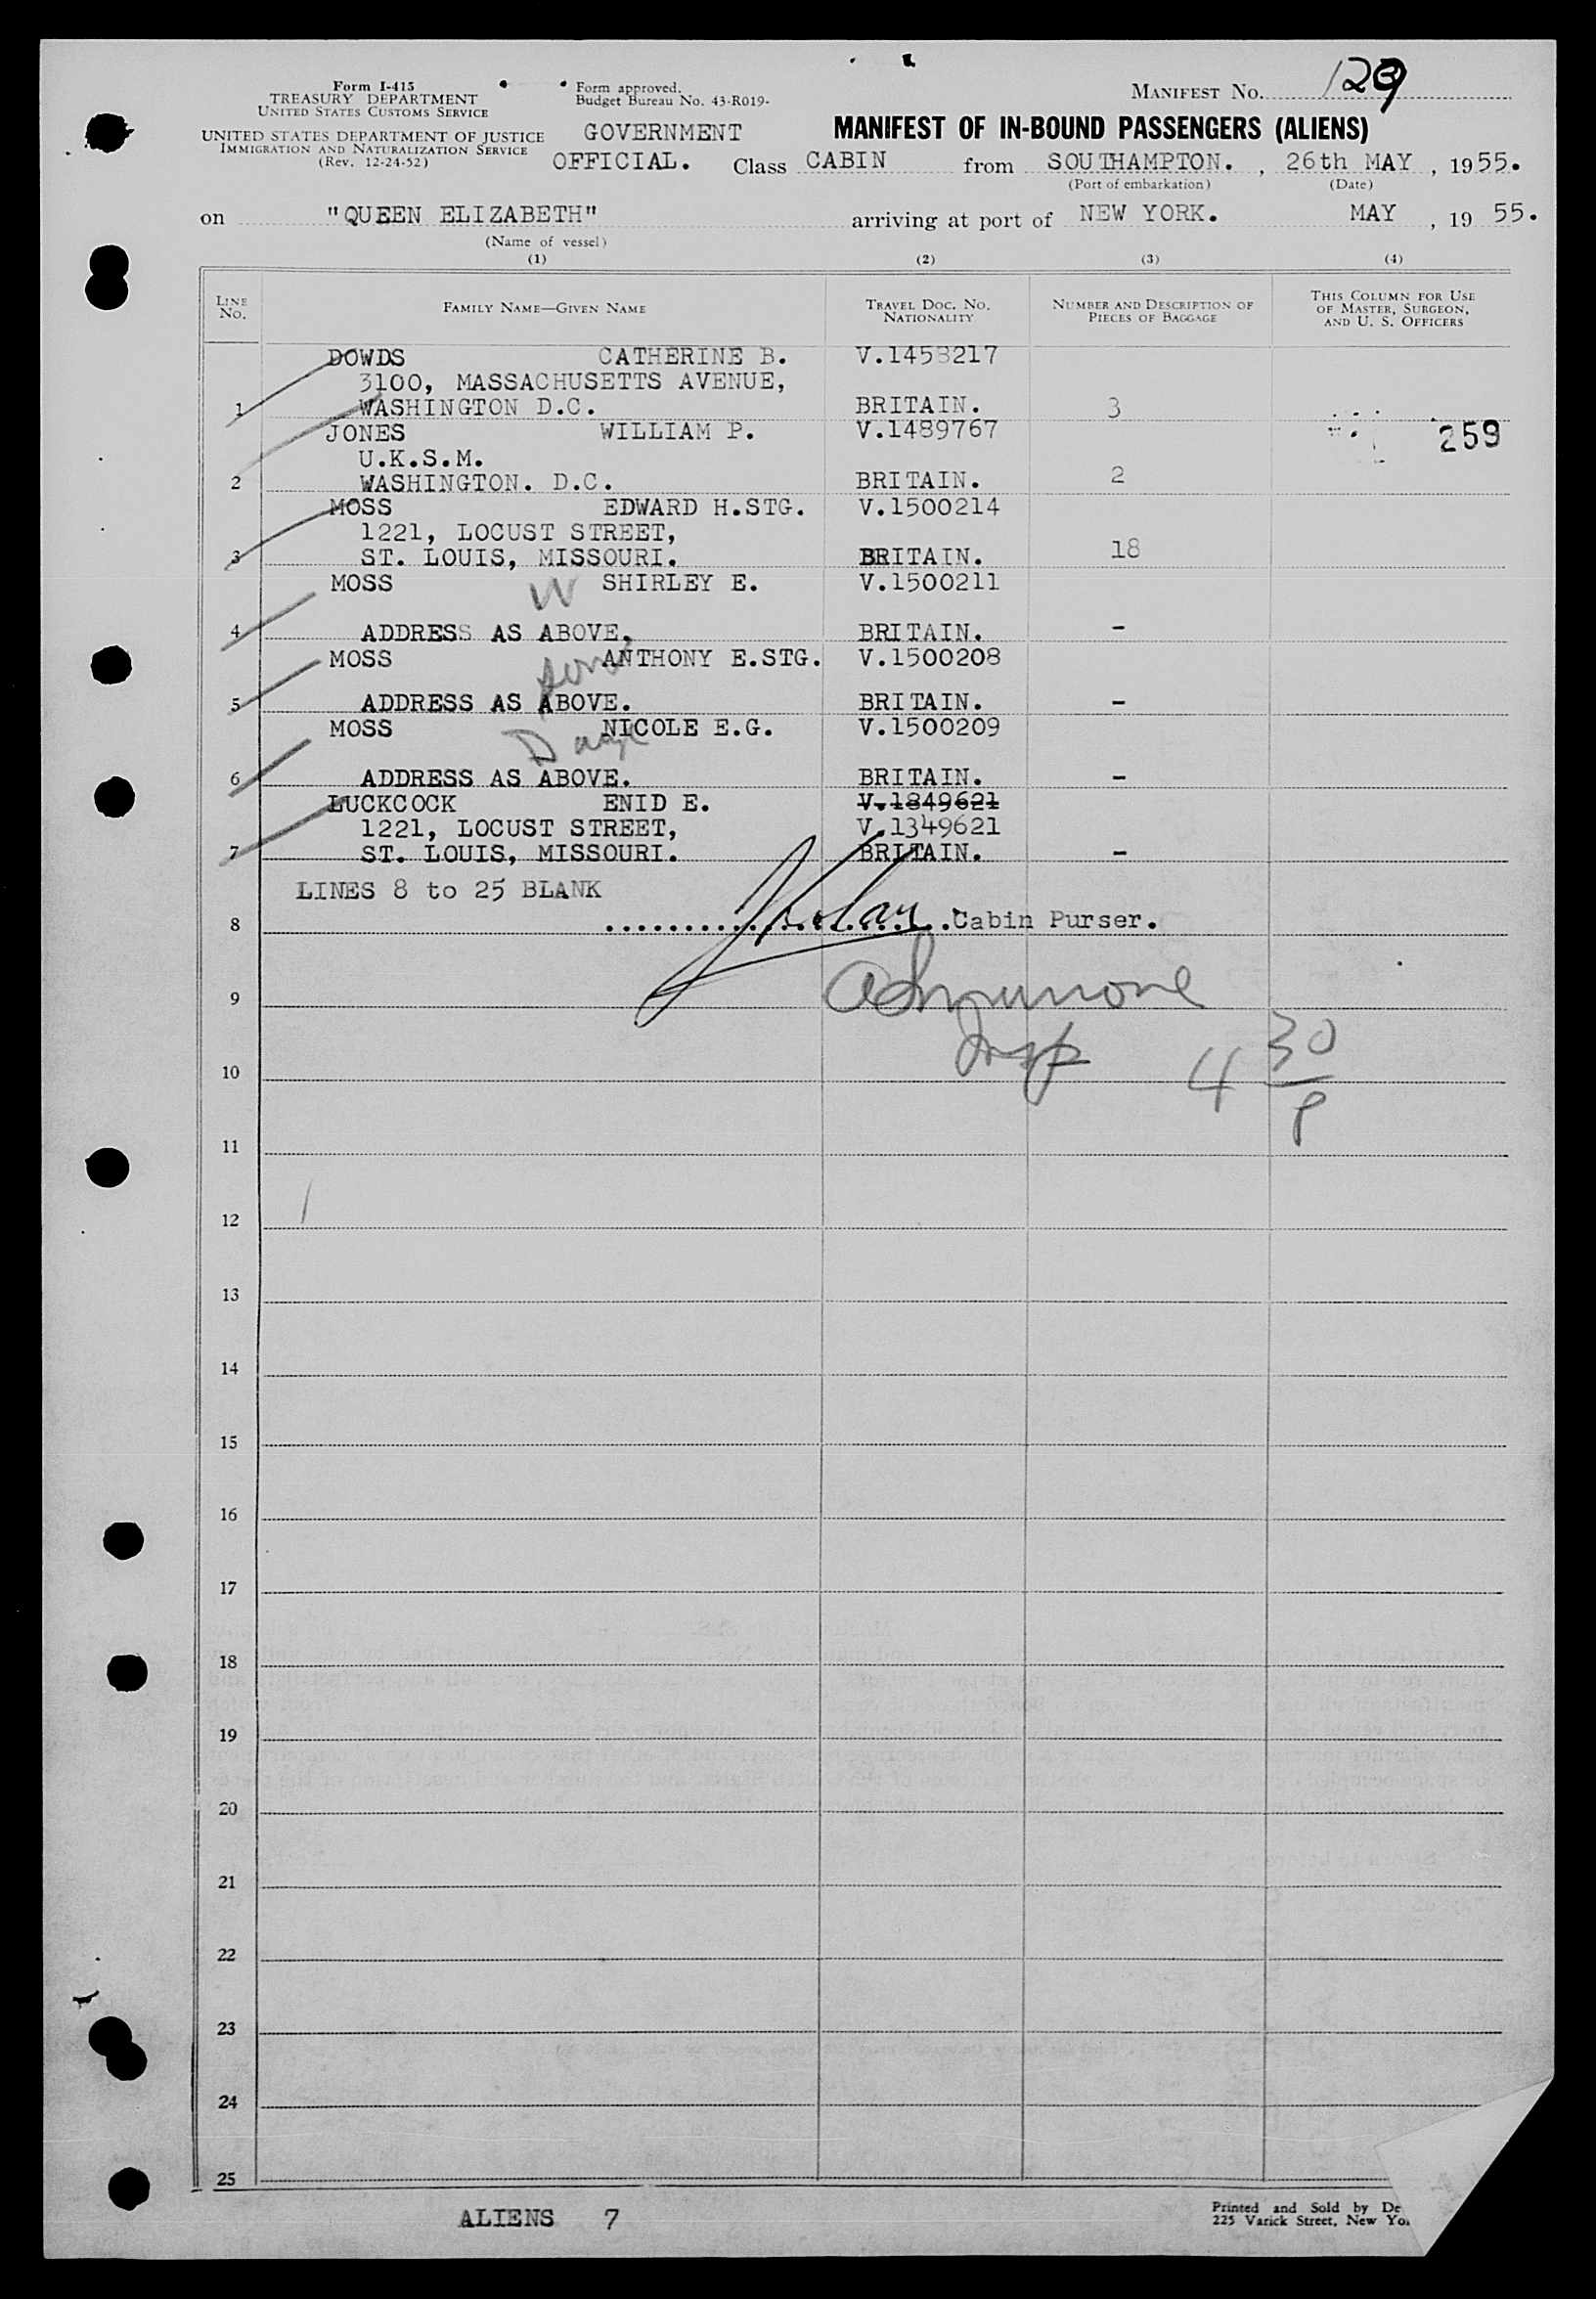 Form I-415
TREASURY DEPARTMENT
UNITED STATES CUSTOMS SERVICE
UNITED STATES DEPARTMENT OF JUSTICE
IMMIGRATION AND NATURALIZATION SERVICE
(Rev. 12-24-52)
Form approved.
Budget Bureau No. 43-R019-
MANIFEST No. 129
GOVERNMENT
OFFICIAL.
MANIFEST OF IN-BOUND PASSENGERS (ALIENS)
Class CABIN from SOUTHAMPTON. , 26th MAY , 1955.
(Port of embarkation) (Date)
on "QUEEN ELIZABETH" arriving at port of NEW YORK. MAY , 19 55.
(Name of vessel)
(1) (2) (3) (4)
LINE No. FAMILY NAME—GIVEN NAME TRAVEL DOC. NO. NATIONALITY NUMBER AND DESCRIPTION OF PIECES OF BAGGAGE THIS COLUMN FOR USE OF MASTER, SURGEON, AND U. S. OFFICERS
DOWDS CATHERINE B. V.1458217
3100, MASSACHUSETTS AVENUE,
1 WASHINGTON D.C. BRITAIN. 3
JONES WILLIAM P. V.1489767 259
U.K.S.M.
2 WASHINGTON. D.C. BRITAIN. 2
MOSS EDWARD H.STG. V.1500214
1221, LOCUST STREET,
3 ST. LOUIS, MISSOURI. BRITAIN. 18
MOSS W SHIRLEY E. V.1500211
4 ADDRESS AS ABOVE. BRITAIN. -
MOSS ANTHONY E.STG. V.1500208
5 ADDRESS AS ABOVE. BRITAIN. -
MOSS NICOLE E.G. V.1500209
6 ADDRESS AS ABOVE. BRITAIN. -
LUCKCOCK ENID E. V.1849621
1221, LOCUST STREET, V.1349621
7 ST. LOUIS, MISSOURI. BRITAIN. -
LINES 8 to 25 BLANK
8 Cabin Purser.
9
Insp 4 30
10
P
11
12
13
14
15
16
17
18
19
20
21
22
23
24
25
ALIENS 7
Printed and Sold by
225 Varick Street, New